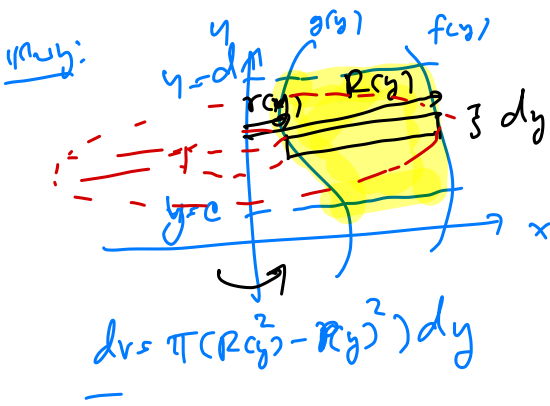 y g(y) f(y)
y = d R(y)
r(y)
} dy
y = c
x
dv = π(R(y)² - r(y)²) dy